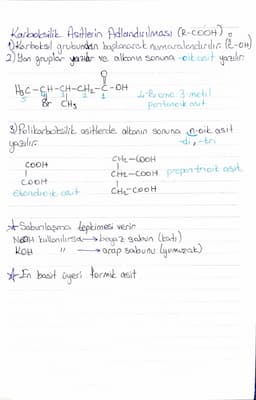 Karboksilik Asitlerin Adlandırılması (R-COOH)
1) Karboksil grubundan başlanarak numaralandırılır. (C-OH)
2) Yan gruplar yazılır ve alkanın sonuna -oik asit yazılır.
O
H3C-CH-CH-CH2-C-OH
5 4 3 2 1
Br CH3
4-Bromo-3-metil
pentanoik asit
3) Polikarboksilik asitlerde alkanın sonuna n-oik asit
-di, -tri
yazılır.
COOH CH2-COOH
CH2-COOH propantrioik asit
COOH CH2-COOH
Etandioik asit
* Sabunlaşma tepkimesi verir
NaOH kullanılırsa → beyaz sabun (katı)
KOH " → arap sabunu (yumuşak)
* En basit üyesi formik asit